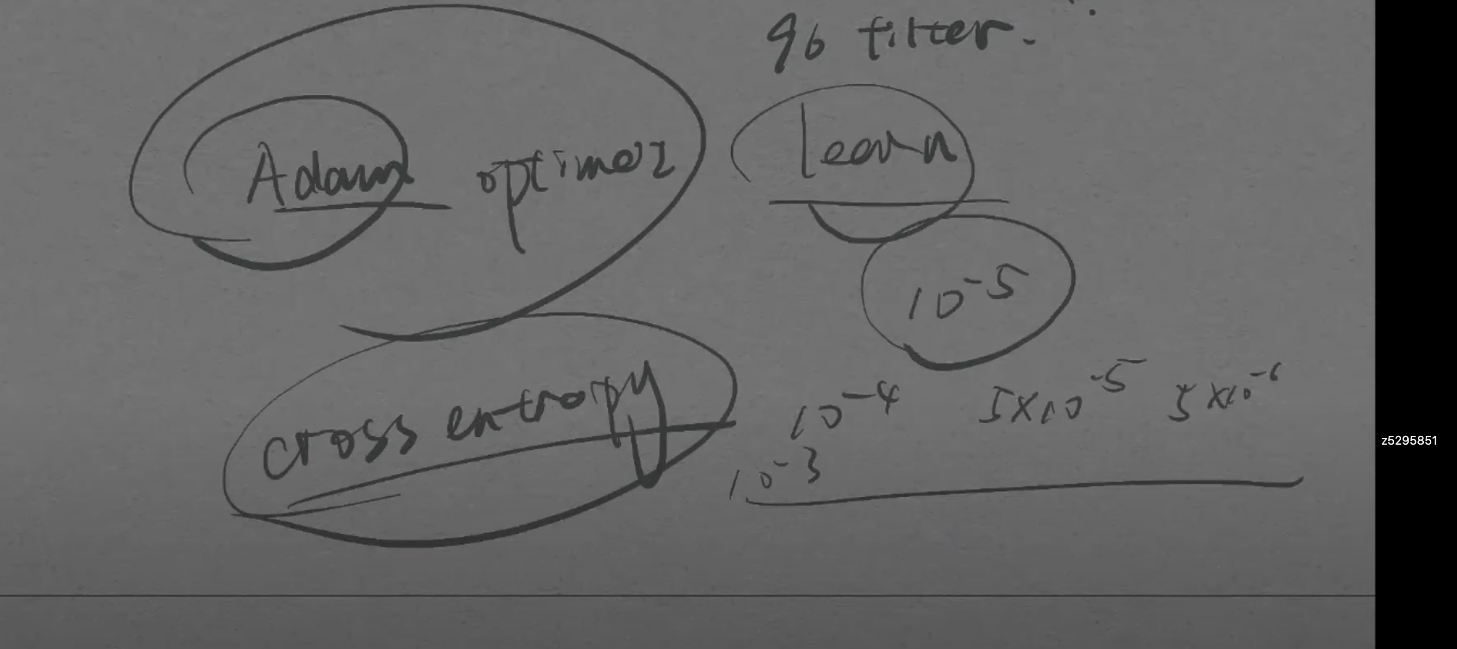 96 filter.
Adam optimez
learn
10⁻⁵
cross entropy
10⁻⁴ 5×10⁻⁵ 5×10⁻⁶
10⁻³
z5295851